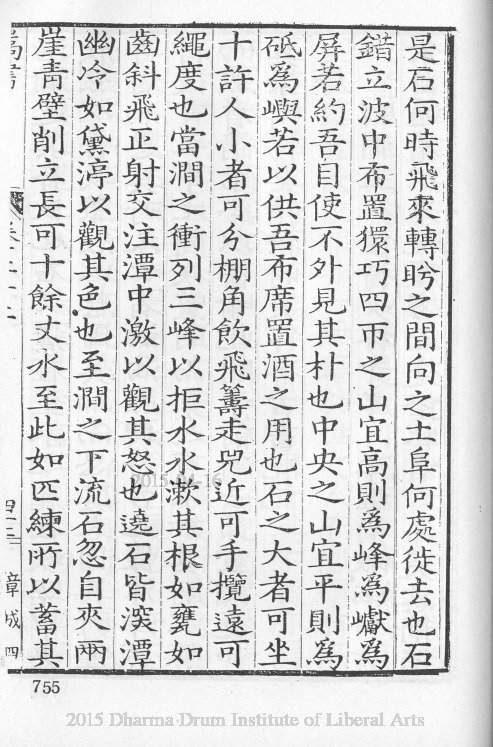 是石何時飛來轉盻之間向之土阜何處徙去也石
錯立波中布置獧巧四帀之山宜高則為峰為巘為
屏若約吾目使不外見其朴也中央之山宜平則為
砥為嶼若以供吾布席置酒之用也石之大者可坐
十許人小者可兮棚角飲飛籌走兕近可手攬遠可
繩度也當澗之衝列三峰以拒水水漱其根如甕如
齒斜飛正射交注潭中激以觀其怒也遶石皆深潭
幽冷如黛渟以觀其色也至澗之下流石忽自夾兩
崖青壁削立長可十餘丈水至此如匹練所以蓄其
卷二十二
四三
章城四
755
2015-11-16
2015 Dharma Drum Institute of Liberal Arts